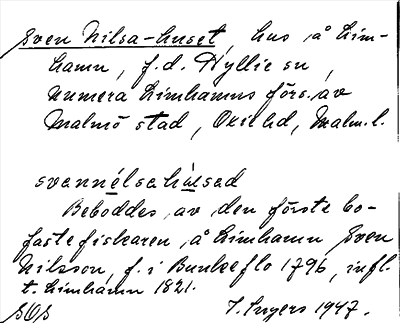 Sven Nilsa-huset, hus å Lim-
hamn, f.d. Hyllie sn,
numera Limhamns förs. av
Malmö stad, Oxie hd, Malm. l.
svennélsahúsed
Beboddes av den förste bo-
faste fiskaren å Limhamn Sven
Nilsson, f. i Bunkeflo 1796, infl.
t. Limhamn 1821.
SOS I. Ingers 1947.